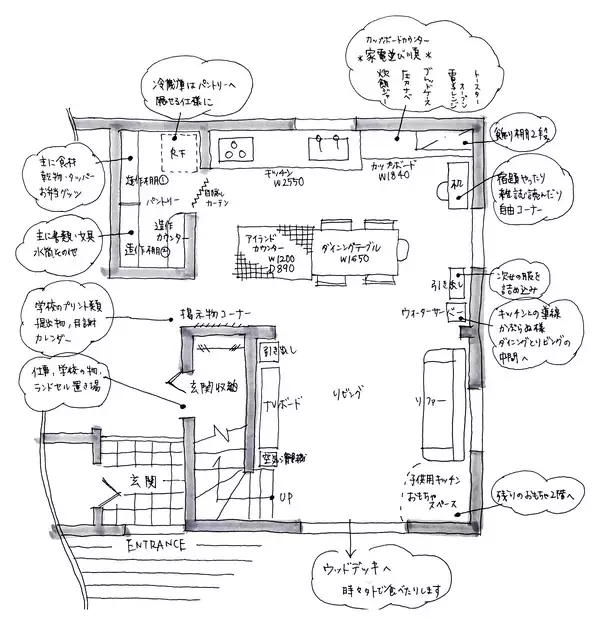 カップボードカウンター
*家電並び順*
トースター
オーブン
電子レンジ
圧力ナベ
炊飯ジャー
冷蔵庫はパントリーへ
隠せる仕様に
飾り棚2段
主に食材
乾物・タッパー
お弁当グッズ
造作棚①
R下
パントリー
目隠し
カーテン
造作
カウンター
造作棚②
キッチン
W2550
カップボード
W1840
机
宿題やったり
雑誌読んだり
自由コーナー
主に書類・文具
水筒その他
アイランド
カウンター
W1200
D890
ダイニングテーブル
W1650
引き出し
次女の服を
詰め込み
ウォーターサーバー
キッチンとの導線
かぶらぬ様
ダイニングとリビングの
中間へ
学校のプリント類
提出物、目詩
カレンダー
掲示物コーナー
仕事、学校の物、
ランドセル置き場
玄関収納
引き出し
TVボード
リビング
ソファー
空気清浄機
玄関
UP
子供用キッチン
おもちゃ
スペース
残りのおもちゃ2階へ
ENTRANCE
ウッドデッキへ
時々外で食べたりします